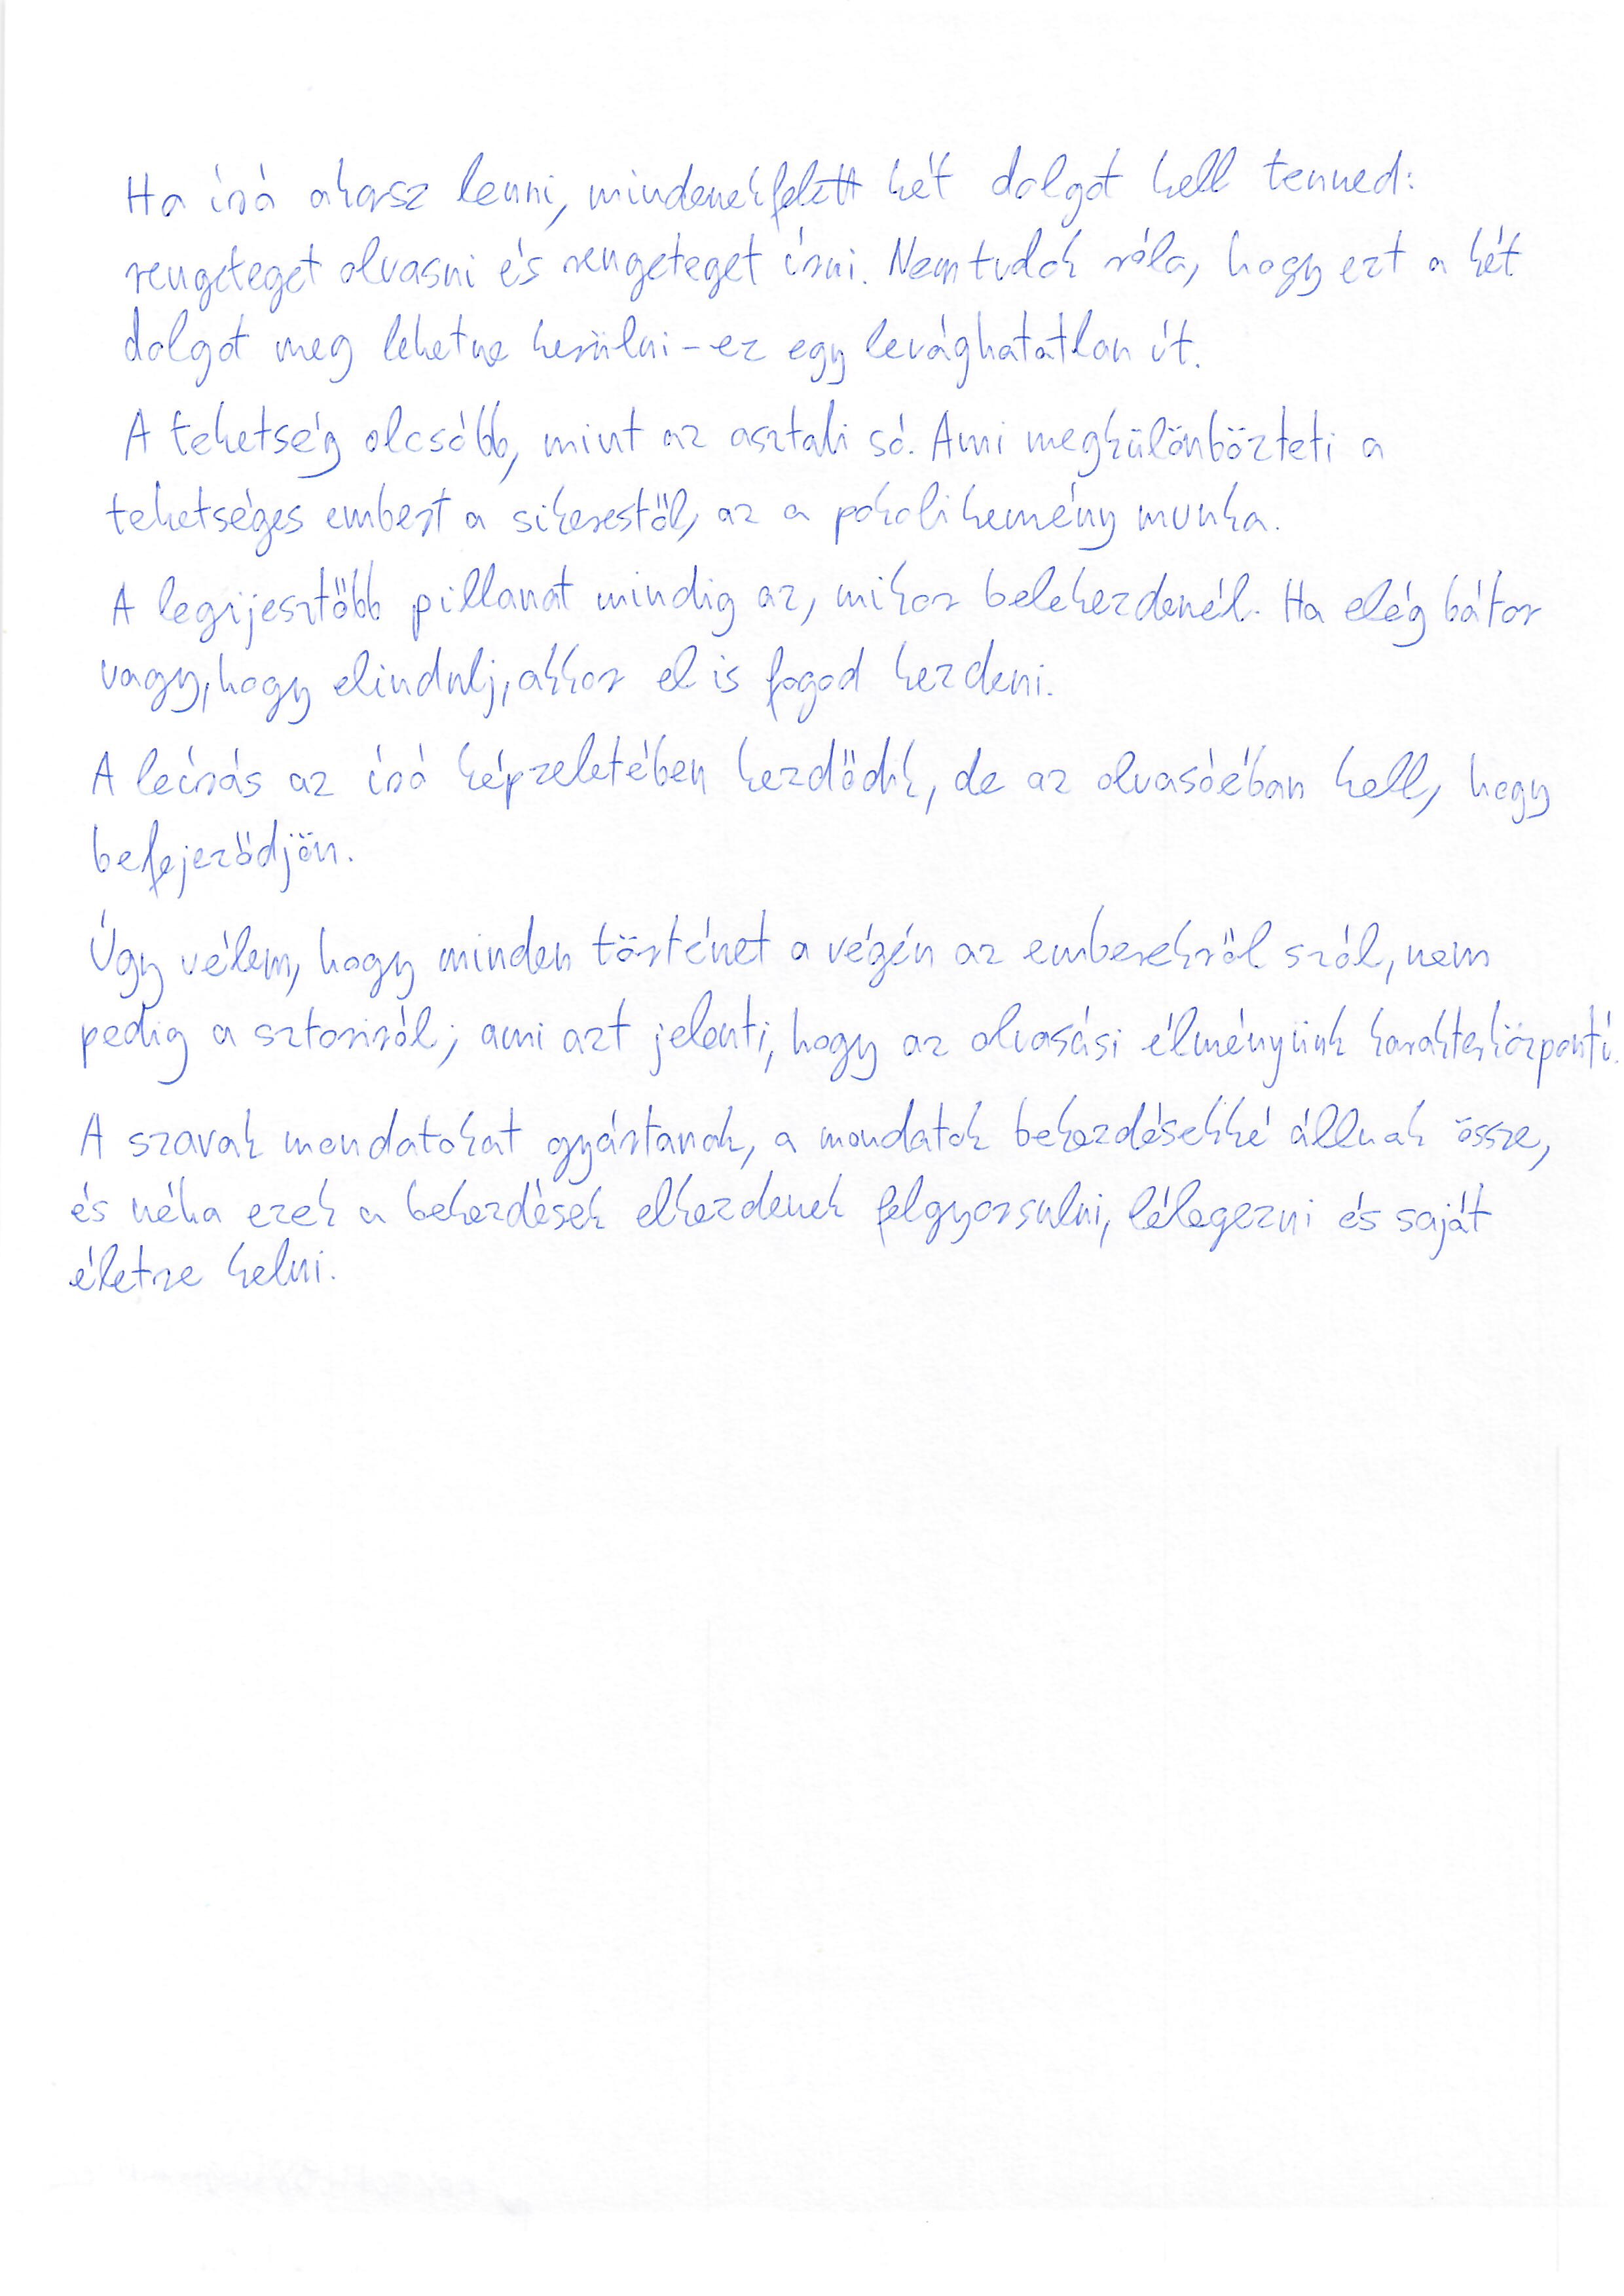 Ha író akarsz lenni, mindenekfelett két dolgot kell tenned:
rengeteget olvasni és rengeteget írni. Nem tudok róla, hogy ezt a két
dolgot meg lehetne kerülni – ez egy levághatatlan út.
A tehetség olcsóbb, mint az asztali só. Ami megkülönbözteti a
tehetséges embert a sikerestől, az a pokoli kemény munka.
A legijesztőbb pillanat mindig az, mikor belekezdenél. Ha elég bátor
vagy, hogy elindulj, akkor el is fogod kezdeni.
A leírás az író képzeletében kezdődik, de az olvasóéban kell, hogy
befejeződjön.
Úgy vélem, hogy minden történet a végén az emberekről szól, nem
pedig a sztoriról; ami azt jelenti, hogy az olvasási élményünk karakterközpontú.
A szavak mondatokat gyártanak, a mondatok bekezdésekké állnak össze,
és néha ezek a bekezdések elkezdenek felgyorsulni, lélegezni és saját
életre kelni.